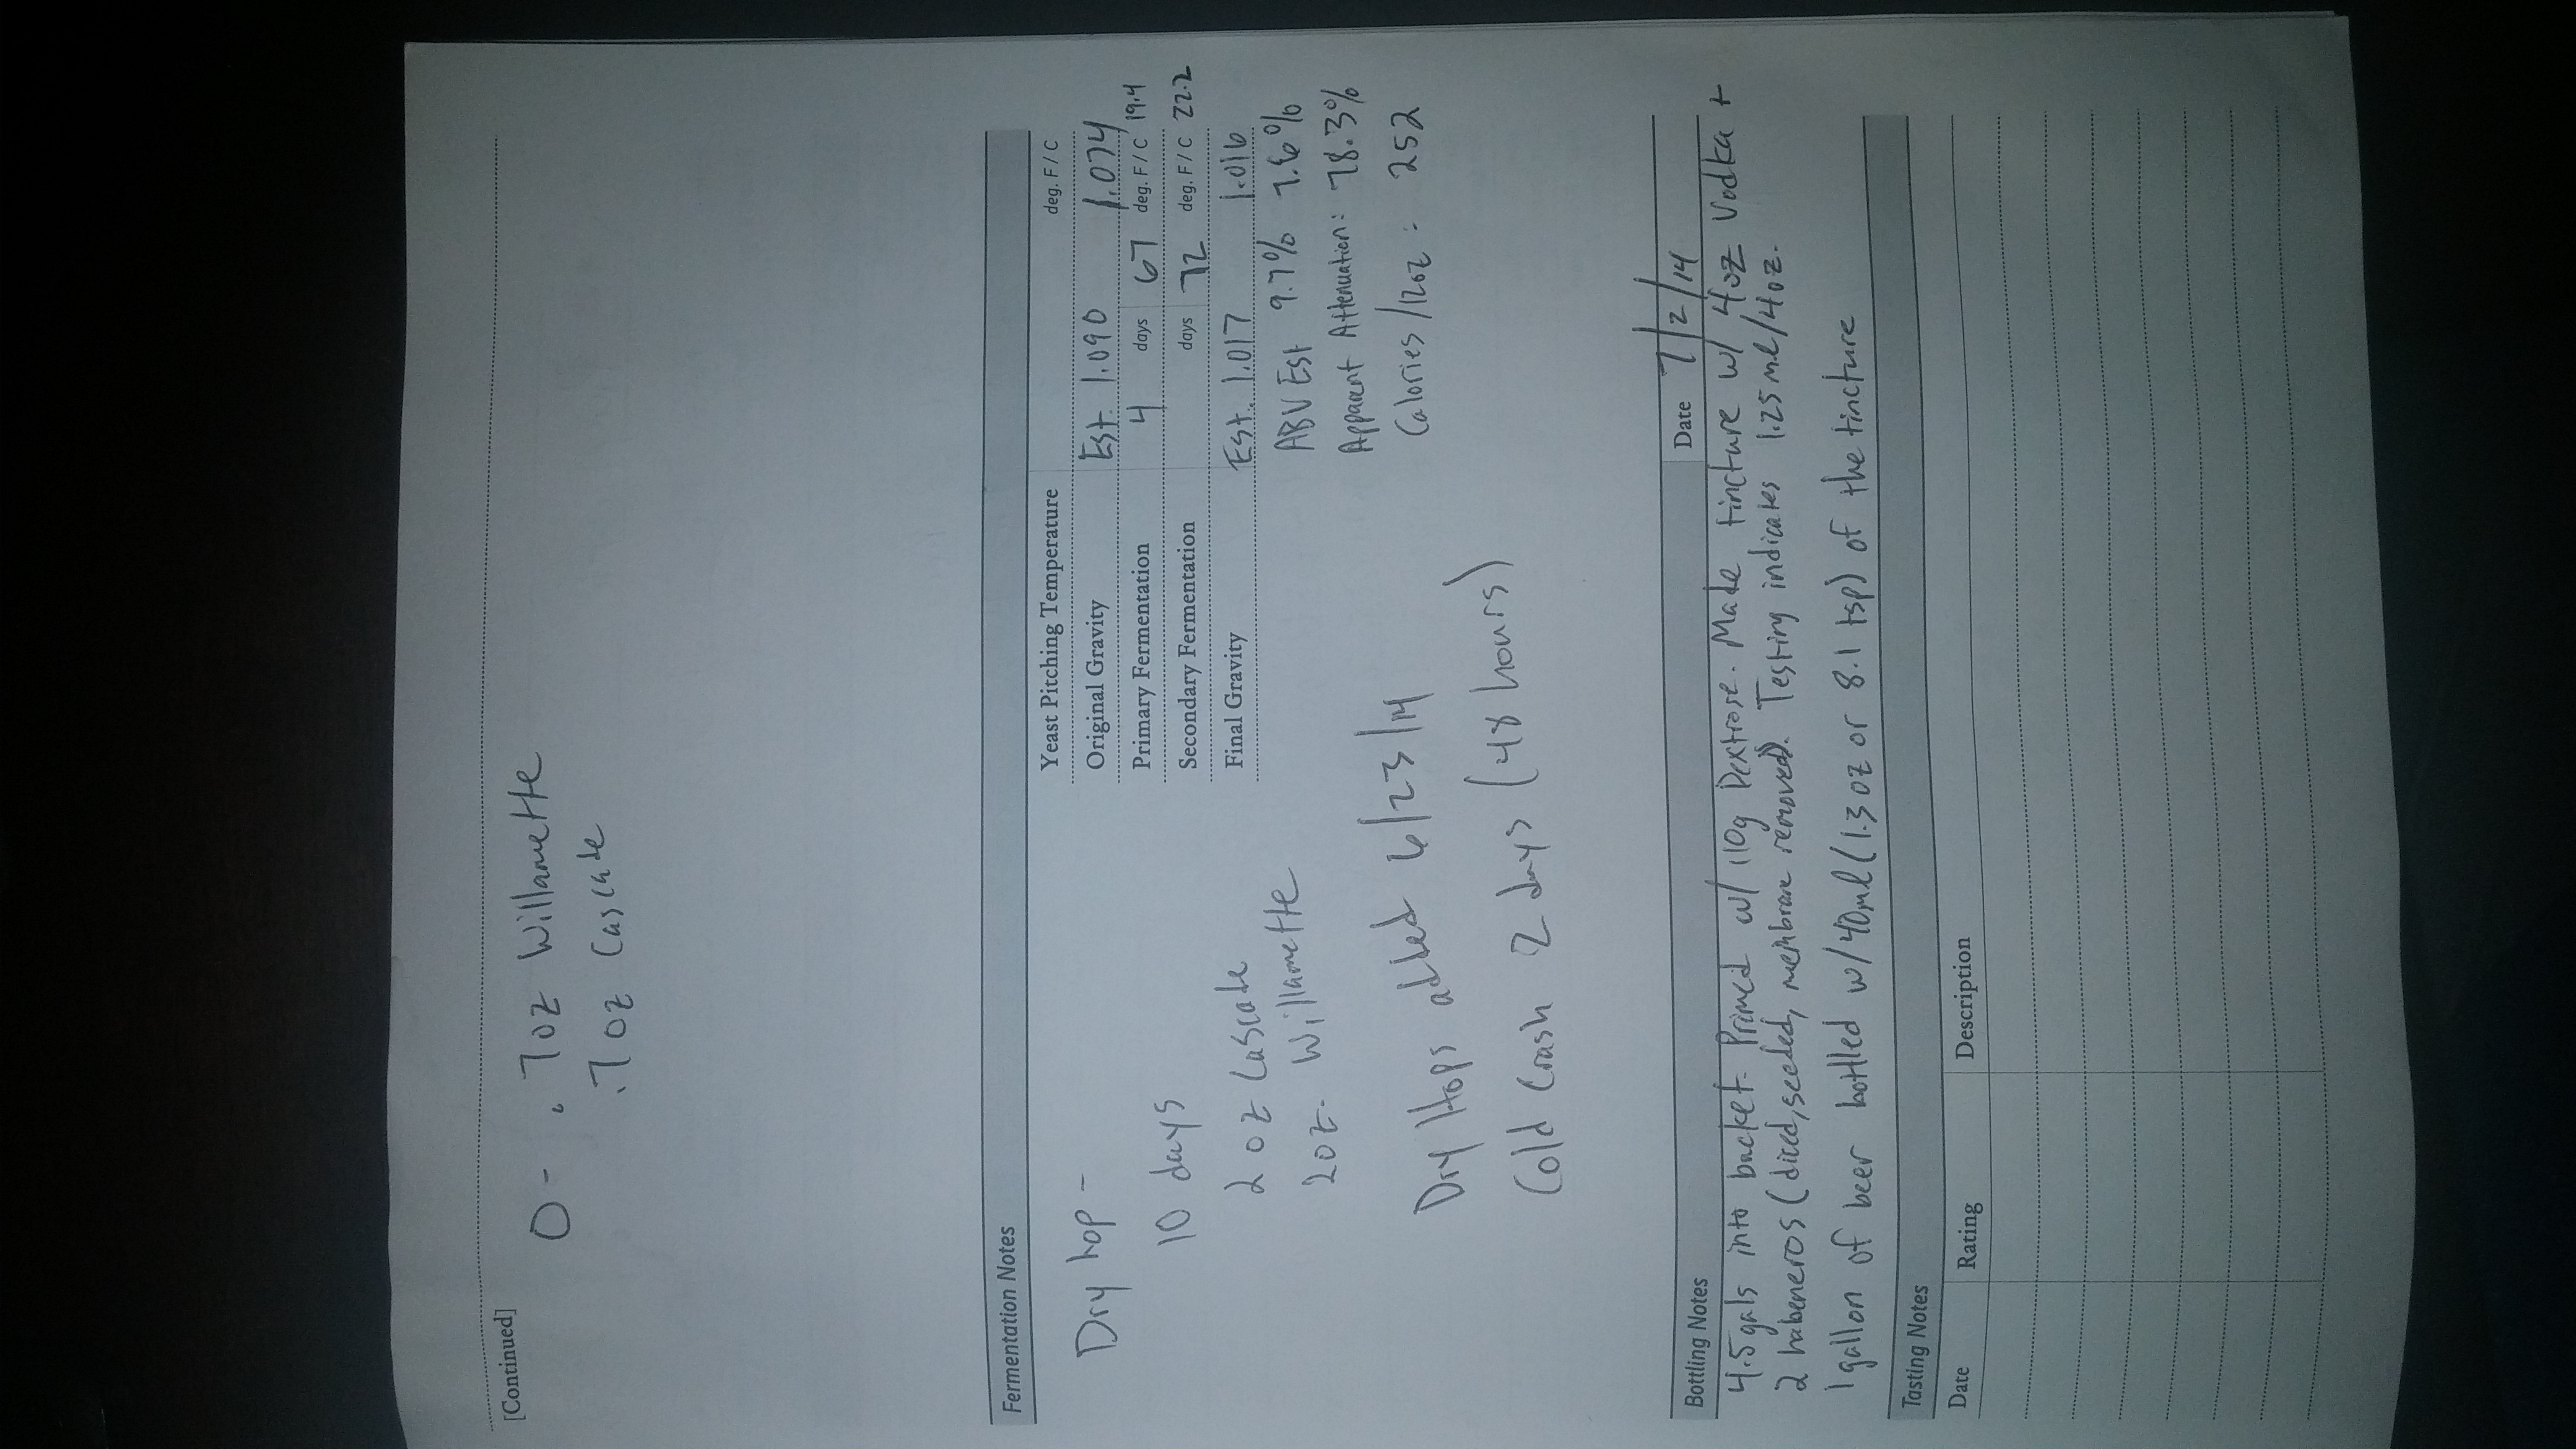 [Continued]
0 - .7oz Willamette
.7oz Cascade
Fermentation Notes
Dry hop -
10 days
2 oz Cascade
2oz. Willamette
Dry Hops added 6/23/14
Cold Crash 2 days (48 hours)
Yeast Pitching Temperature deg. F / C
Original Gravity Est. 1.090 1.074
Primary Fermentation 4 days 67 deg. F / C 19.4
Secondary Fermentation days 72 deg. F / C 22.2
Final Gravity Est. 1.017 1.016
ABV Est 9.7% 7.6%
Apparent Attenuation: 78.3%
Calories/12oz : 252
Bottling Notes Date 7/2/14
4.5gals into bucket. Primed w/ 110g Dextrose. Made tincture w/ 4oz Vodka +
2 habeneros (diced, seeded, membrane removed). Testing indicates 1.25ml/4oz.
1 gallon of beer bottled w/40ml (1.3 oz or 8.1 tsp) of the tincture
Tasting Notes
Date Rating Description